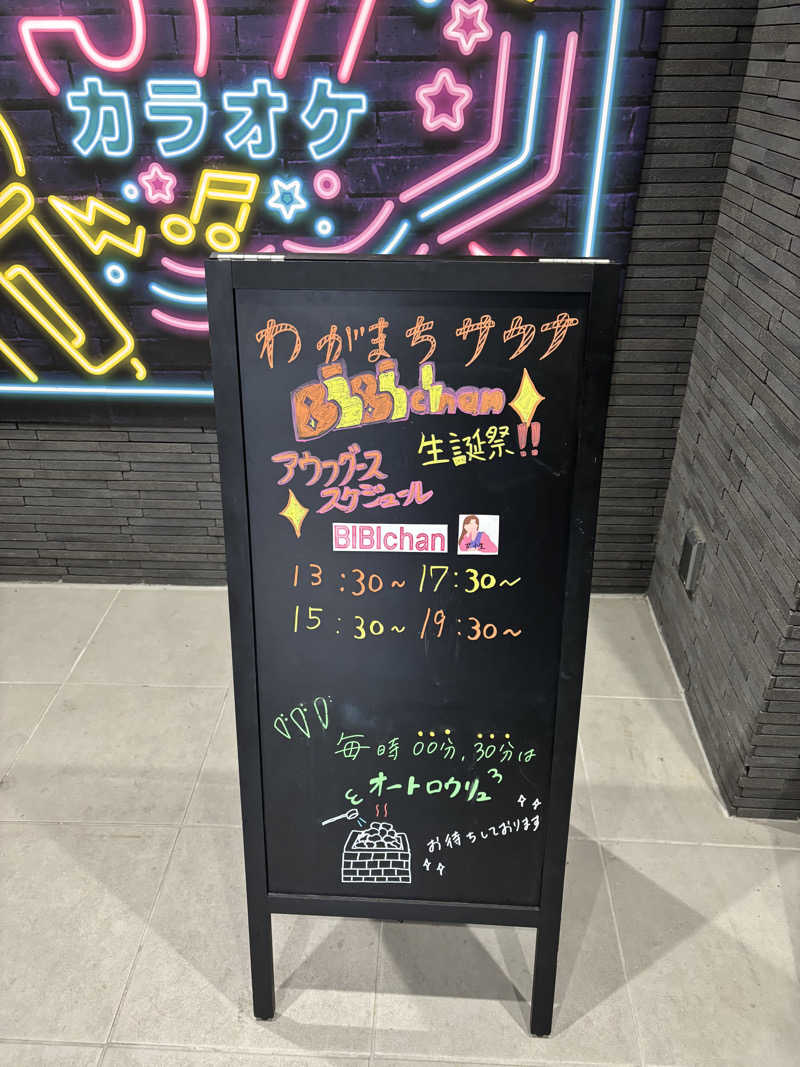 カラオケ
わがまちサウナ
BiBichan
生誕祭!!
アウフグース
スケジュール
BIBIchan
13:30～ 17:30～
15:30～ 19:30～
毎時00分、30分は
オートロウリュ
お待ちしております